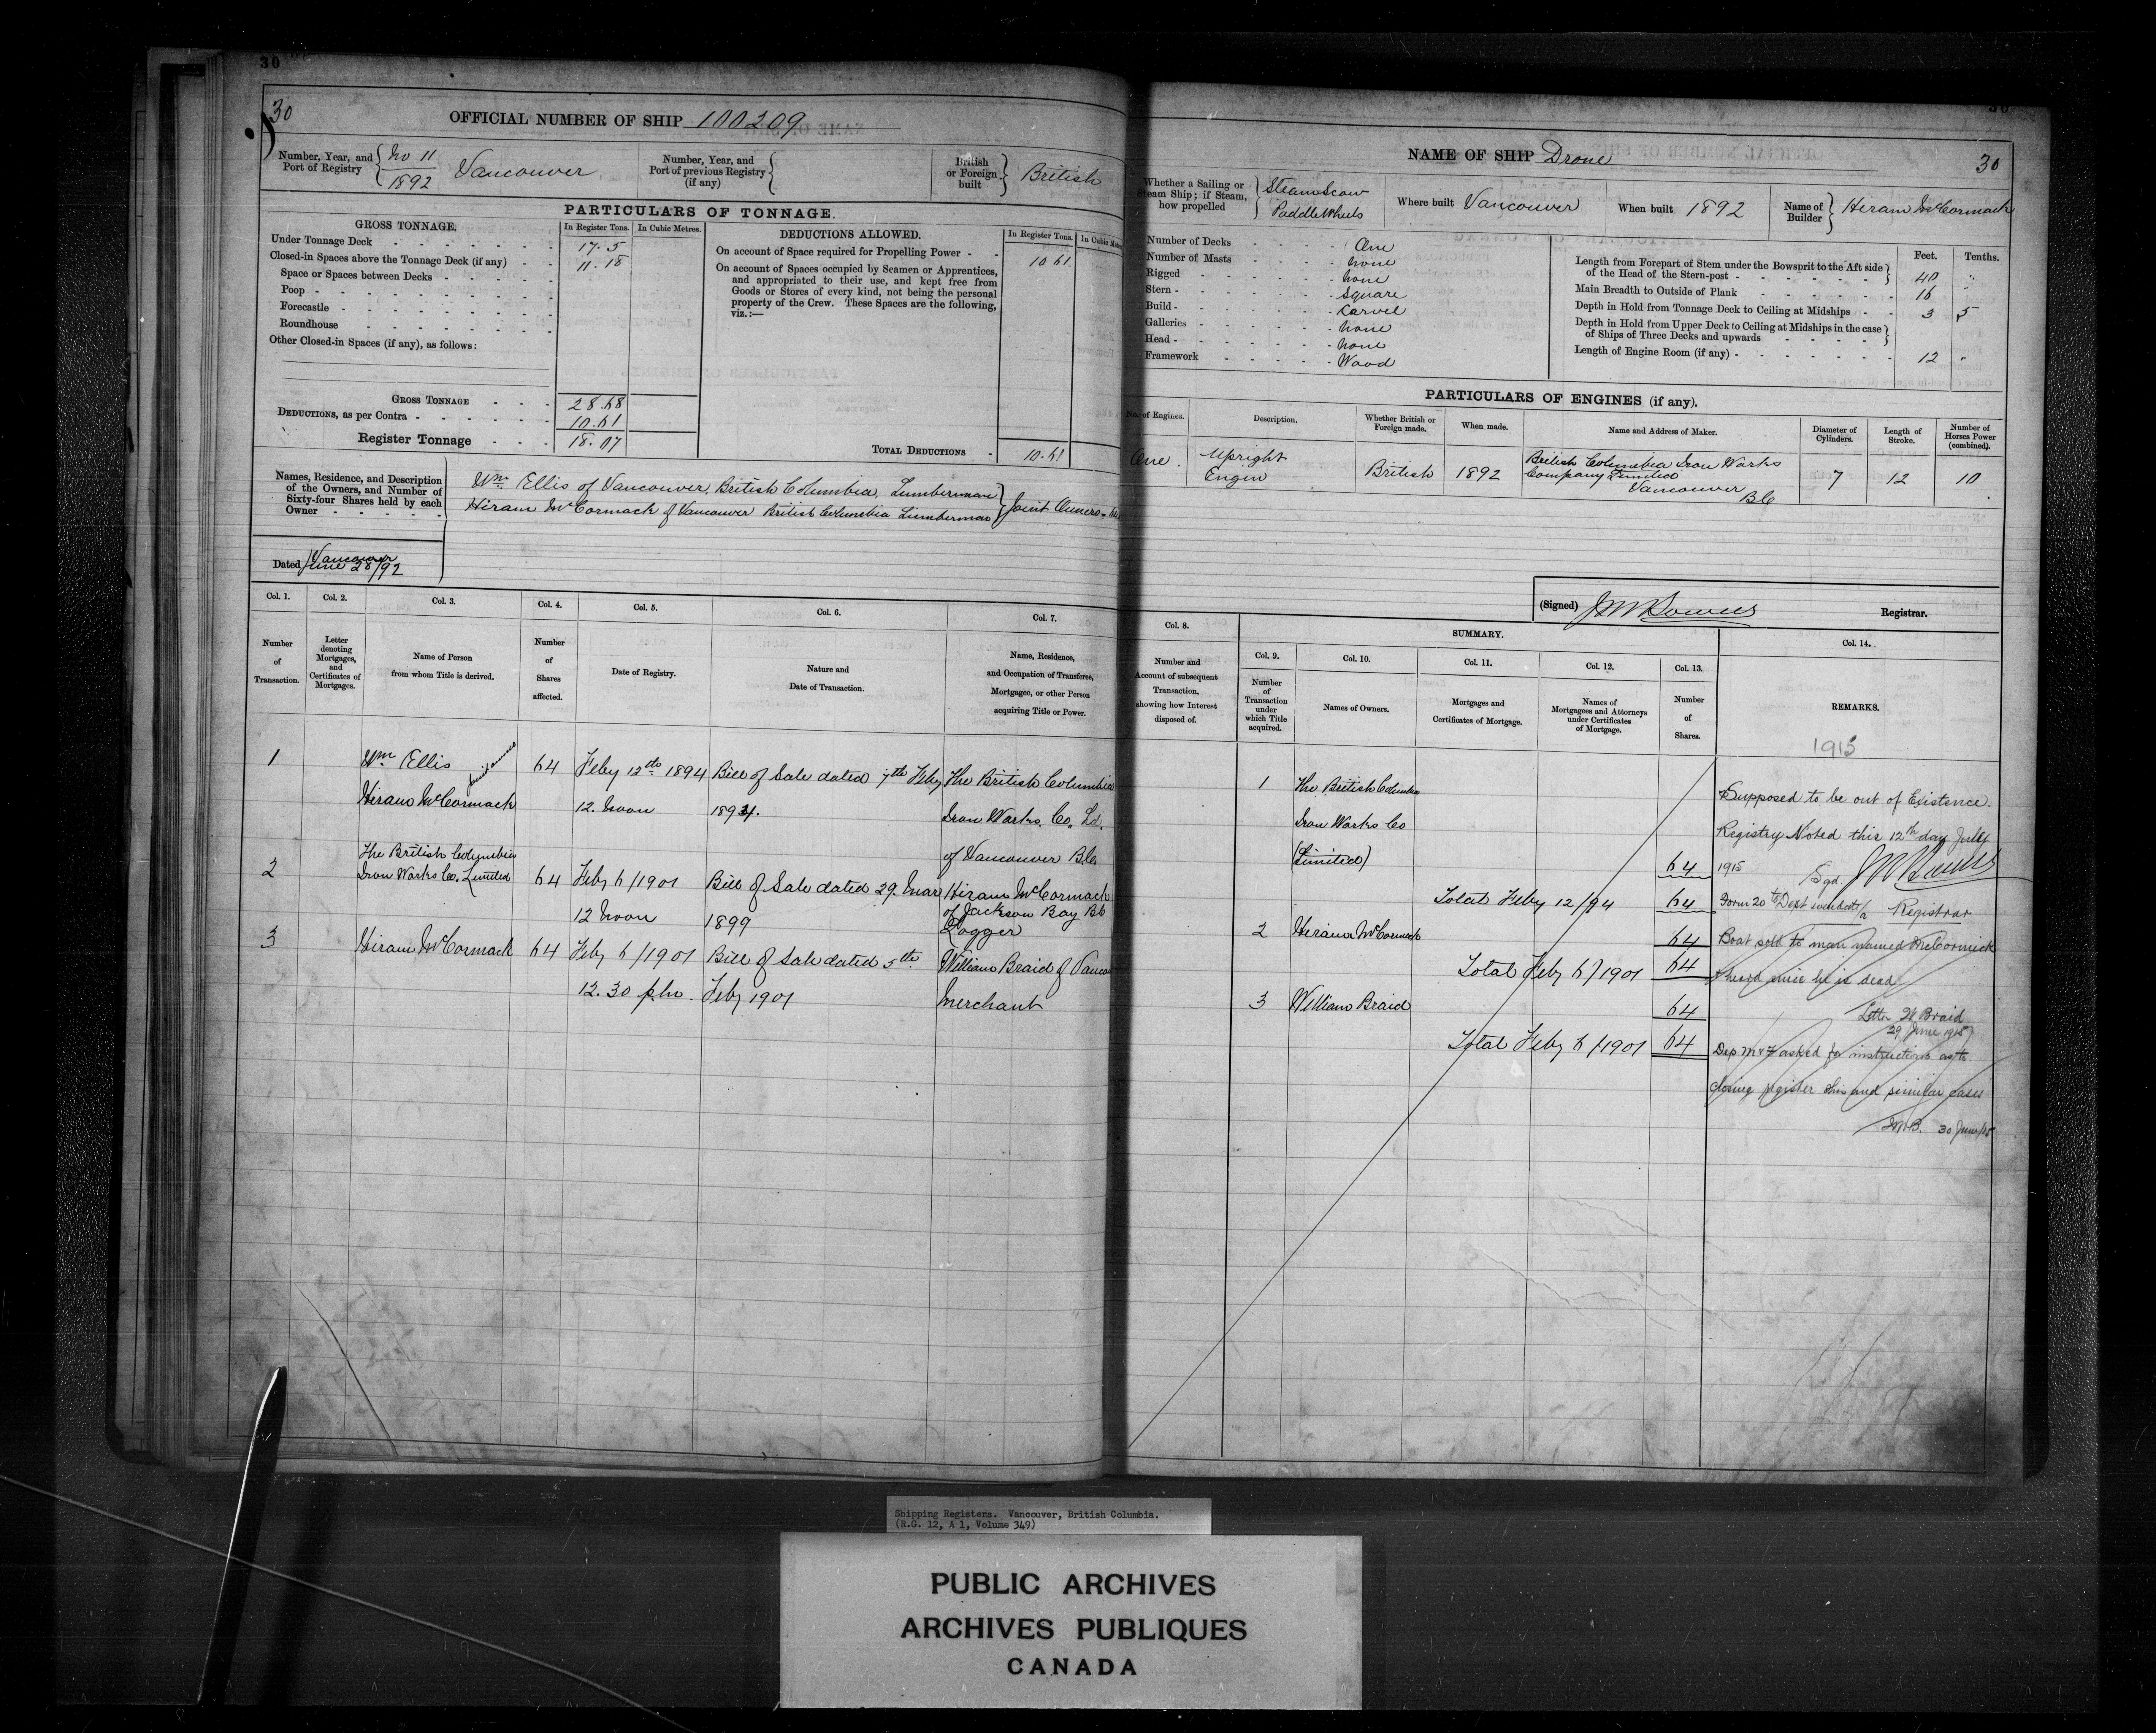 30
30
OFFICIAL NUMBER OF SHIP 100209
Number, Year, and Port of Registry
No 11
1892
Vancouver
Number, Year, and Port of previous Registry (if any)
British or Foreign built
British
PARTICULARS OF TONNAGE.
GROSS TONNAGE.
In Register Tons.
In Cubic Metres.
Under Tonnage Deck 17.5
Closed-in Spaces above the Tonnage Deck (if any) 11.18
Space or Spaces between Decks
Poop
Forecastle
Roundhouse
Other Closed-in Spaces (if any), as follows:
GROSS TONNAGE 28.68
DEDUCTIONS, as per Contra 10.61
Register Tonnage 18.07
DEDUCTIONS ALLOWED.
In Register Tons.
In Cubic
On account of Space required for Propelling Power 10 61
On account of Spaces occupied by Seamen or Apprentices,
and appropriated to their use, and kept free from
Goods or Stores of every kind, not being the personal
property of the Crew. These Spaces are the following,
viz.:—
TOTAL DEDUCTIONS 10.61
Names, Residence, and Description
of the Owners, and Number of
Sixty-four Shares held by each
Owner
Wm Ellis of Vancouver, British Columbia, Lumberman
Hiram McCormack of Vancouver British Columbia Lumberman
Joint Owners - 64
Dated Vancouver
June 28/92
Col. 1.
Number
of
Transaction.
Col. 2.
Letter
denoting
Mortgages,
and
Certificates of
Mortgages.
Col. 3.
Name of Person
from whom Title is derived.
Col. 4.
Number
of
Shares
affected.
Col. 5.
Date of Registry.
Col. 6.
Nature and
Date of Transaction.
Col. 7.
Name, Residence,
and Occupation of Transferee,
Mortgagee, or other Person
acquiring Title or Power.
1 Wm Ellis 64 Feby 12th 1894 Bill of Sale dated 7th Feby The British Columbia
Hiram McCormack 12. Noon 1894. Iron Works Co. Ld.
of Vancouver B.C.
The British Columbia
2 Iron Works Co. Limited 64 Feby 6/1901 Bill of Sale dated 29. Mar Hiram McCormack
12 Noon 1899 of Jackson Bay BC
Logger
3 Hiram McCormack 64 Feby 6/1901 Bill of Sale dated 5th William Braid of Vanco
12.30 p.m. Feby 1901 Merchant
30
NAME OF SHIP Drone
30
Whether a Sailing or
Steam Ship; if Steam,
how propelled
Steam Scow
Paddle Wheels
Where built Vancouver
When built 1892
Name of Builder
Hiram McCormack
Number of Decks One
Number of Masts none
Rigged none
Stern square
Build Carvel
Galleries none
Head none
Framework Wood
Feet.
Tenths.
Length from Forepart of Stem under the Bowsprit to the Aft side
of the Head of the Stern-post 40 "
Main Breadth to Outside of Plank 16 "
Depth in Hold from Tonnage Deck to Ceiling at Midships 3 5
Depth in Hold from Upper Deck to Ceiling at Midships in the case
of Ships of Three Decks and upwards
Length of Engine Room (if any) 12 "
PARTICULARS OF ENGINES (if any).
No. of Engines.
Description.
Whether British or Foreign made.
When made.
Name and Address of Maker.
Diameter of Cylinders.
Length of Stroke.
Number of Horses Power (combined).
One.
Upright
Engin
British
1892
British Columbia Iron Works
Company Limited
Vancouver
BC
7
12
10
(Signed) Registrar.
Col. 8.
Number and
Account of subsequent
Transaction,
showing how Interest
disposed of.
SUMMARY.
Col. 9.
Number
of
Transaction
under
which Title
acquired.
Col. 10.
Names of Owners.
Col. 11.
Mortgages and
Certificates of Mortgage.
Col. 12.
Names of
Mortgagees and Attorneys
under Certificates
of Mortgage.
Col. 13.
Number
of
Shares.
Col. 14.
REMARKS.
1 The British Columbia
Iron Works Co
(Limited) 64
Total Feby 12/94 64
2 Hiram McCormack 64
Total Feby 6/1901 64
3 William Braid 64
Total Feby 6/1901 64
1915
Supposed to be out of Existence.
Registry Noted this 12th day July
1915
Sgd.
Form 20 to Dept Registrar
Boat sold to man named McCormick
I heard since he is dead
Letter W Braid
29 June 1915
Dep M & F asked for instructions as to
closing register this and similar cases
30 June/15
Shipping Registers. Vancouver, British Columbia.
(R.G. 12, A 1, Volume 349)
PUBLIC ARCHIVES
ARCHIVES PUBLIQUES
CANADA